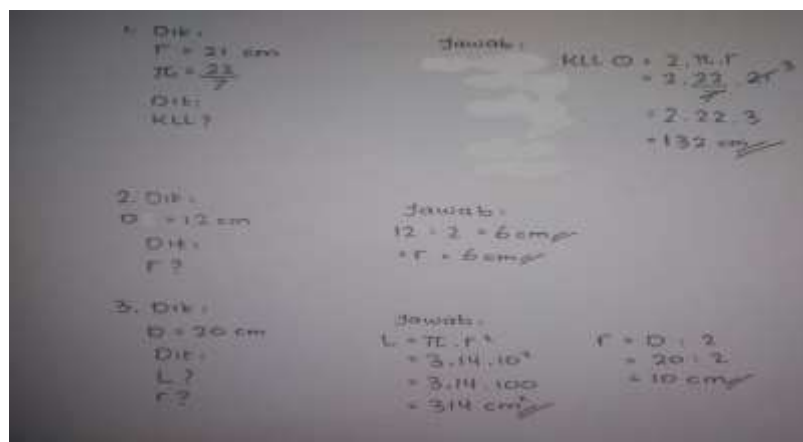 1. Dik:
r = 21 cm
π = 22/7
Dit:
KLL?
Jawab:
KLL O = 2.π.r
= 2.22/7.21 3
= 2.22.3
= 132 cm
2. Dik:
D = 12 cm
Dit:
r?
Jawab:
12 : 2 = 6 cm
= r = 6 cm
3. Dik:
D = 20 cm
Dit:
L?
r?
Jawab:
L = π.r²
= 3,14.10²
= 3,14.100
= 314 cm²
r = D : 2
= 20 : 2
= 10 cm